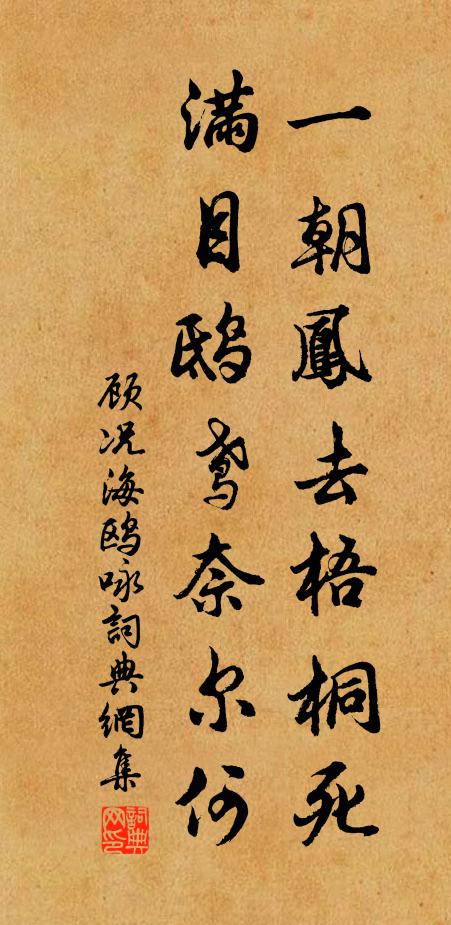 一朝鳳去梧桐死
滿目鴟鳶奈尔何
顾况海鸥咏詞典網集
詞典网印